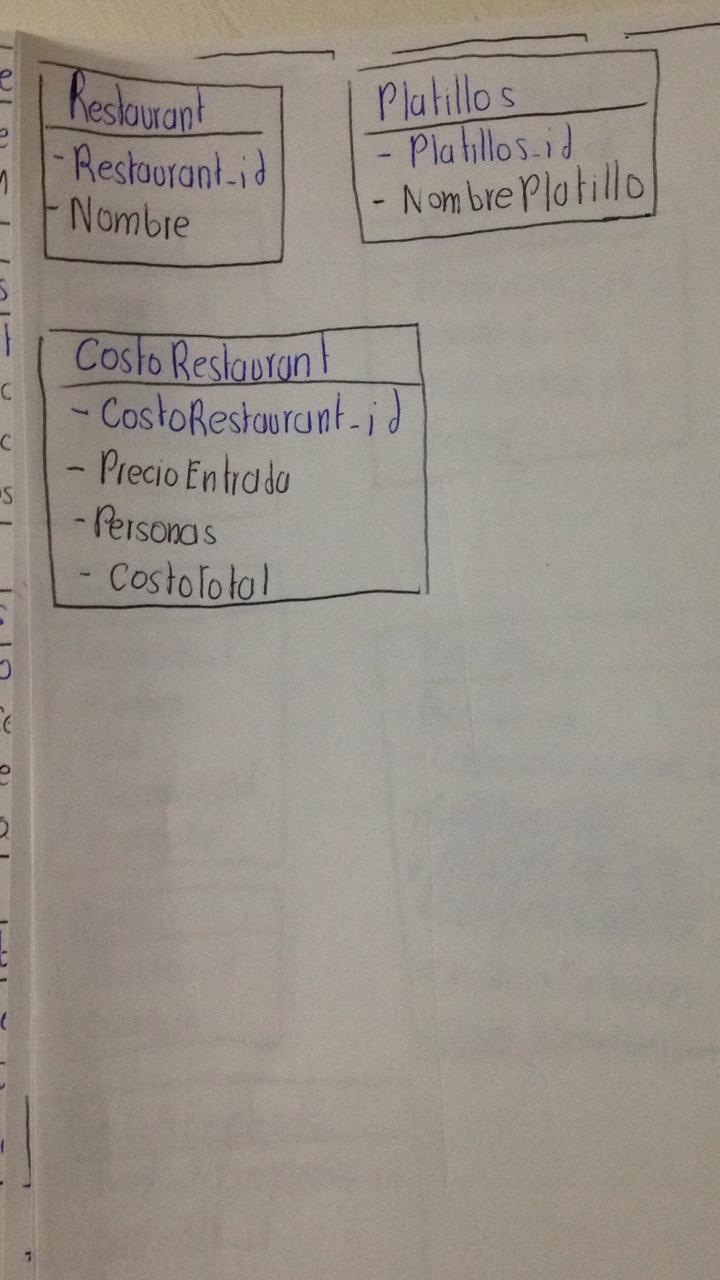 Restaurant
- Restaurant_id
- Nombre
Platillos
- Platillos_id
- NombrePlatillo
CostoRestaurant
- CostoRestaurant_id
- PrecioEntrada
- Personas
- CostoTotal